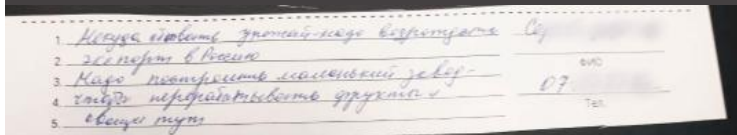 1. Некуда сбывать урожай-надо возродить Се
2. экспорт в Россию
ФИО
3. Надо построить маленький завод-
4. чтобы перерабатывать фрукты и 07
Тел.
5. овощи тут